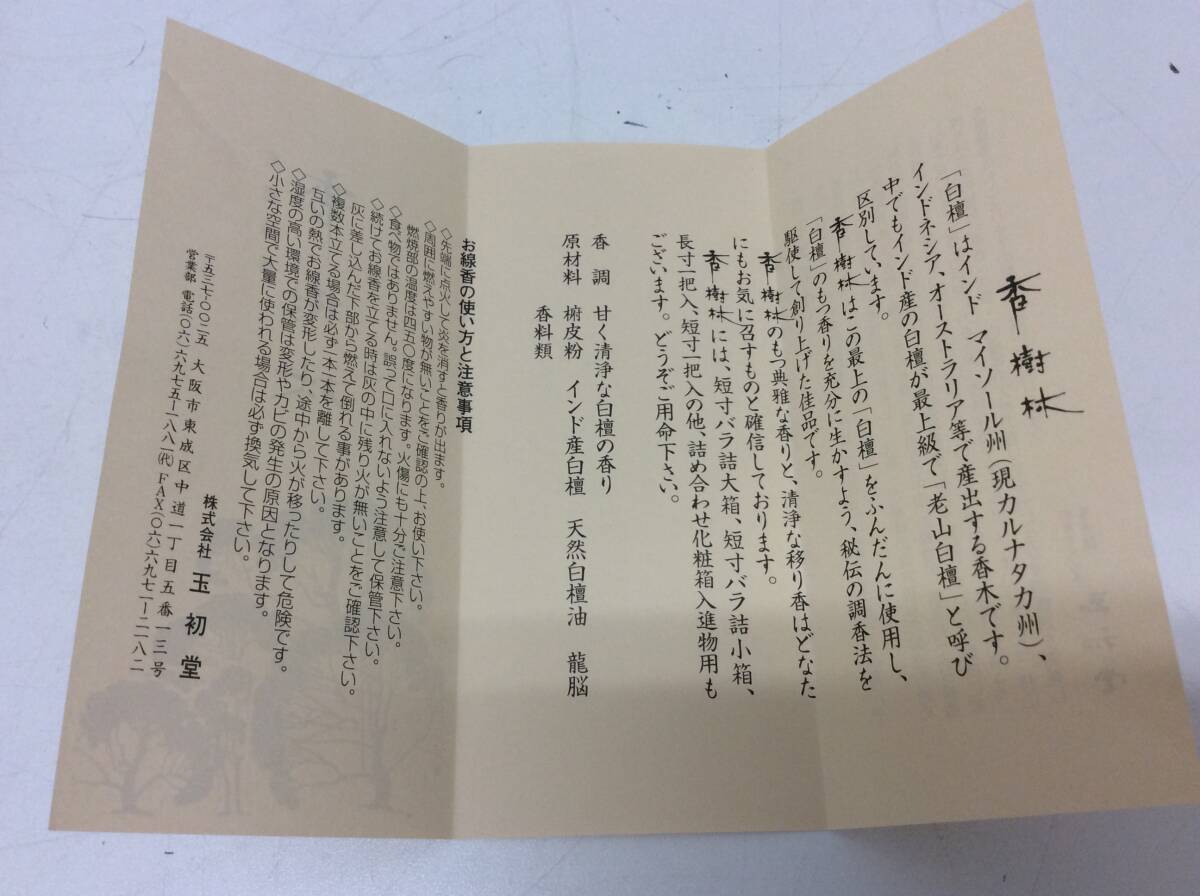 香樹林
「白檀」はインド　マイソール州(現カルナタカ州)、
インドネシア、オーストラリア等で産出する香木です。
中でもインド産の白檀が最上級で「老山白檀」と呼び
区別しています。
香樹林はこの最上の「白檀」をふんだんに使用し、
「白檀」のもつ香りを充分に生かすよう、秘伝の調香法を
駆使して創り上げた佳品です。
香樹林のもつ典雅な香りと、清浄な移り香はどなた
にもお気に召すものと確信しております。
香樹林には、短寸バラ詰大箱、短寸バラ詰小箱、
長寸一把入、短寸一把入の他、詰め合わせ化粧箱入進物用も
ございます。どうぞご用命下さい。
香　調　甘く清浄な白檀の香り
原材料　椨皮粉　インド産白檀　天然白檀油　龍脳
香料類
お線香の使い方と注意事項
◇先端に点火して炎を消すと香りが出ます。
◇周囲に燃えやすい物が無いことをご確認の上、お使い下さい。
燃焼部の温度は四五〇度になります。火傷にも十分ご注意下さい。
◇食べ物ではありません。誤って口に入れないよう注意して保管下さい。
◇続けてお線香を立てる時は灰の中に残り火が無いことをご確認下さい。
灰に差し込んだ下部から燃えて倒れる事があります。
◇複数本立てる場合は必ず一本一本を離して下さい。
互いの熱でお線香が変形したり、途中から火が移ったりして危険です。
◇湿度の高い環境での保管は変形やカビの発生の原因となります。
◇小さな空間で大量に使われる場合は必ず換気して下さい。
株式会社　玉初堂
〒五三七-〇〇二五　大阪市東成区中道一丁目五番一三号
営業部　電話(〇六)六九七五-一八八一(代)　FAX(〇六)六九七一-二二八二